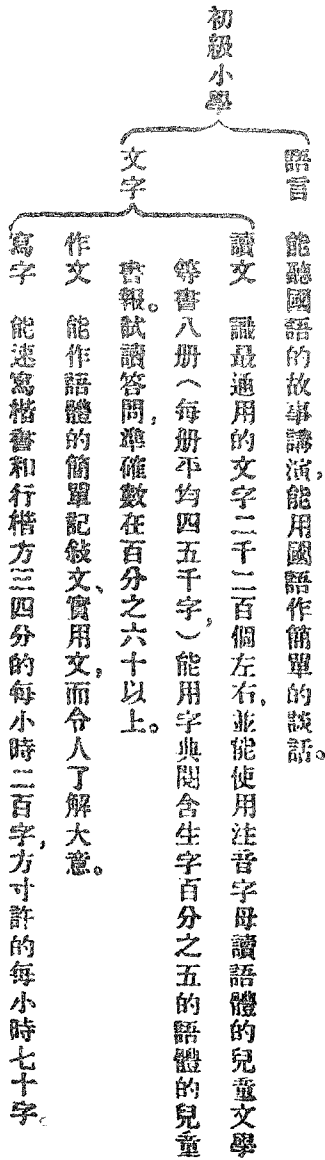 初級小學
語言　能聽國語的故事講演，能用國語作簡單的談話。
文字
讀文　識最通用的文字二千二百個左右，並能使用注音字母讀語體的兒童文學
等書八册（每册平均四五千字，）能用字典閱含生字百分之五的語體的兒童
書報。試讀答問，準確數在百分之六十以上。
作文　能作語體的簡單記敍文、實用文，而令人了解大意。
寫字　能速寫楷書和行楷方三四分的每小時二百字，方寸許的每小時七十字。